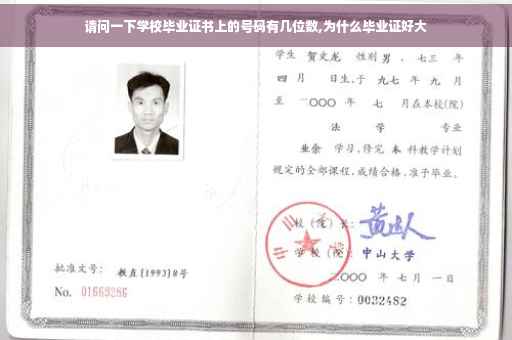 请问一下学校毕业证书上的号码有几位数,为什么毕业证好大
学生 贺文龙 性别 男 、七三 年
四 月 日生,于 九七 年 九 月
至 二〇〇〇 年 七 月在本校(院)
法 学 专业
业余 学习,修完 本 科教学计划
规定的全部课程,成绩合格,准予毕业。
校(院)长:
学校(院): 中山大学
二〇〇〇 年 七 月 一 日
学校编号: 0032482
批准文号: 教直[1993]8号
No. 01669286